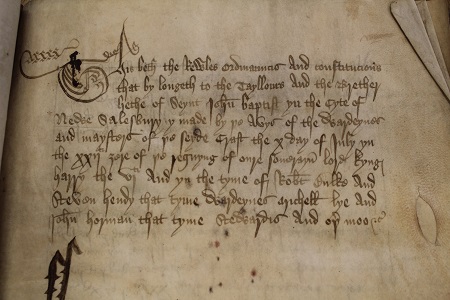 This beth the Rewles ordinauncis And constitucions
that by longeth to the Tayllours And the Brether
hethe of Seynt John baptist yn the Cyte of
Newe Salesbury y made by þe Avys of the Wardeynes
and maysters of þe seyde Craft the x day of July yn
the xxvj zere of þe regnyng of oure sovereyn lord kyng
harry the vj And yn the tyme of Robt And
Steven hendy that tyme Wardeynes Michell lye and
John horman that tyme Stewardis And oþ moo